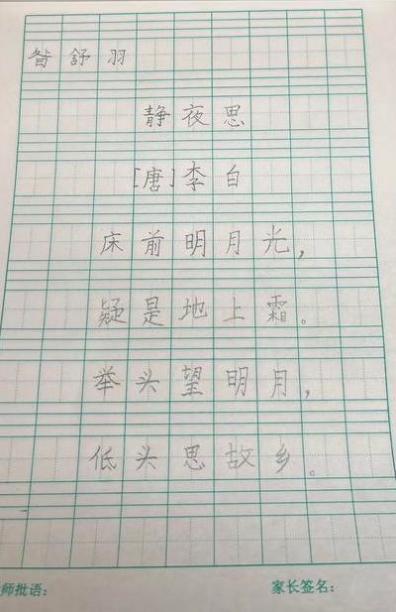 昝舒羽
静夜思
[唐]李白
床前明月光，
疑是地上霜。
举头望明月，
低头思故乡。
师批语： 家长签名：